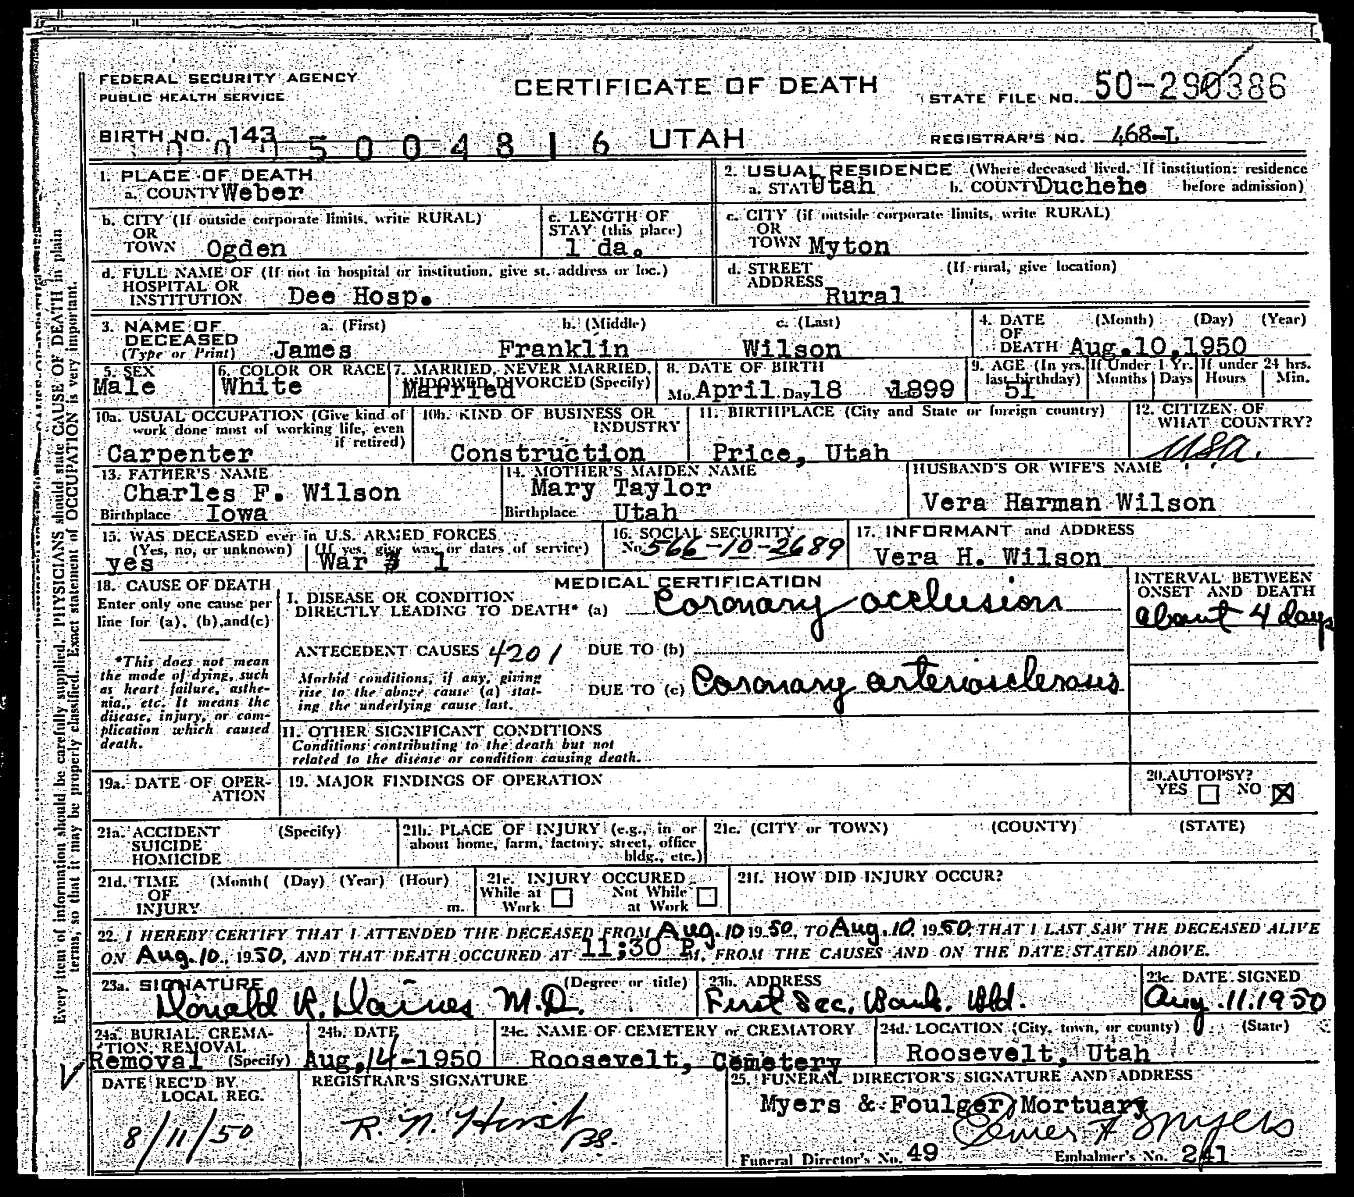 FEDERAL SECURITY AGENCY
PUBLIC HEALTH SERVICE
CERTIFICATE OF DEATH
STATE FILE NO. 50-290386
BIRTH NO. 143
0005004816
UTAH
REGISTRAR'S NO. 468-L
1. PLACE OF DEATH
a. COUNTY Weber
2. USUAL RESIDENCE (Where deceased lived. If institution: residence before admission)
a. STATE Utah b. COUNTY Duchehe
b. CITY (If outside corporate limits, write RURAL)
OR
TOWN Ogden
c. LENGTH OF
STAY (this place)
1 da.
c. CITY (if outside corporate limits, write RURAL)
OR
TOWN Myton
d. FULL NAME OF (If not in hospital or institution, give st. address or loc.)
HOSPITAL OR
INSTITUTION Dee Hosp.
d. STREET (If rural, give location)
ADDRESS
Rural
3. NAME OF a. (First) b. (Middle) c. (Last)
DECEASED
(Type or Print) James Franklin Wilson
4. DATE (Month) (Day) (Year)
OF
DEATH Aug. 10, 1950
5. SEX
Male
6. COLOR OR RACE
White
7. MARRIED, NEVER MARRIED,
WIDOWED DIVORCED (Specify)
Married
8. DATE OF BIRTH
Mo. April Day 18 1899
9. AGE (In yrs. last birthday)
51
If Under 1 Yr.
Months Days
If under 24 hrs.
Hours Min.
10a. USUAL OCCUPATION (Give kind of
work done most of working life, even
if retired)
Carpenter
10b. KIND OF BUSINESS OR
INDUSTRY
Construction
11. BIRTHPLACE (City and State or foreign country)
Price, Utah
12. CITIZEN OF
WHAT COUNTRY?
USA.
13. FATHER'S NAME
Charles F. Wilson
Birthplace Iowa
14. MOTHER'S MAIDEN NAME
Mary Taylor
Birthplace Utah
HUSBAND'S OR WIFE'S NAME
Vera Harman Wilson
15. WAS DECEASED ever in U.S. ARMED FORCES
(Yes, no, or unknown) (If yes, give war, or dates of service)
yes War 1
16. SOCIAL SECURITY
No. 566-10-2689
17. INFORMANT and ADDRESS
Vera H. Wilson
18. CAUSE OF DEATH
Enter only one cause per
line for (a), (b), and (c)
*This does not mean
the mode of dying, such
as heart failure, asthe-
nia, etc. It means the
disease, injury, or com-
plication which caused
death.
MEDICAL CERTIFICATION
I. DISEASE OR CONDITION
DIRECTLY LEADING TO DEATH* (a) Coronary occlusion
ANTECEDENT CAUSES 4201 DUE TO (b)
Morbid conditions, if any, giving
rise to the above cause (a) stat-
ing the underlying cause last.
DUE TO (c) Coronary arteriosclerosus
INTERVAL BETWEEN
ONSET AND DEATH
about 4 days
II. OTHER SIGNIFICANT CONDITIONS
Conditions contributing to the death but not
related to the disease or condition causing death.
19a. DATE OF OPER-
ATION
19. MAJOR FINDINGS OF OPERATION
20. AUTOPSY?
YES NO X
21a. ACCIDENT (Specify)
SUICIDE
HOMICIDE
21b. PLACE OF INJURY (e.g., in or
about home, farm, factory, street, office
bldg., etc.)
21c. (CITY or TOWN) (COUNTY) (STATE)
21d. TIME (Month( (Day) (Year) (Hour)
OF
INJURY m.
21e. INJURY OCCURED
While at Work Not While at Work
21f. HOW DID INJURY OCCUR?
22. I HEREBY CERTIFY THAT I ATTENDED THE DECEASED FROM Aug. 10 19 50, TO Aug. 10, 19 50, THAT I LAST SAW THE DECEASED ALIVE
ON Aug. 10, 19 50, AND THAT DEATH OCCURED AT 11:30 P M, FROM THE CAUSES AND ON THE DATE STATED ABOVE.
23a. SIGNATURE (Degree or title)
Donald R. Daines M.D.
23b. ADDRESS
First Sec. Bank. Bld.
23c. DATE SIGNED
Aug. 11. 1950
24a. BURIAL, CREMA-
TION REMOVAL
Removal (Specify)
24b. DATE
Aug, 14-1950
24c. NAME OF CEMETERY or CREMATORY
Roosevelt, Cemetery
24d. LOCATION (City, town, or county) (State)
Roosevelt, Utah
DATE REC'D BY
LOCAL REG.
8/11/50
REGISTRAR'S SIGNATURE
25. FUNERAL DIRECTOR'S SIGNATURE AND ADDRESS
Myers & Foulger Mortuary
Elmer A Myers
Funeral Director's No. 49 Embalmer's No. 241
Every item of information should be carefully supplied. PHYSICIANS should state CAUSE OF DEATH in plain
terms, so that it may be properly classified. Exact statement of OCCUPATION is very important.